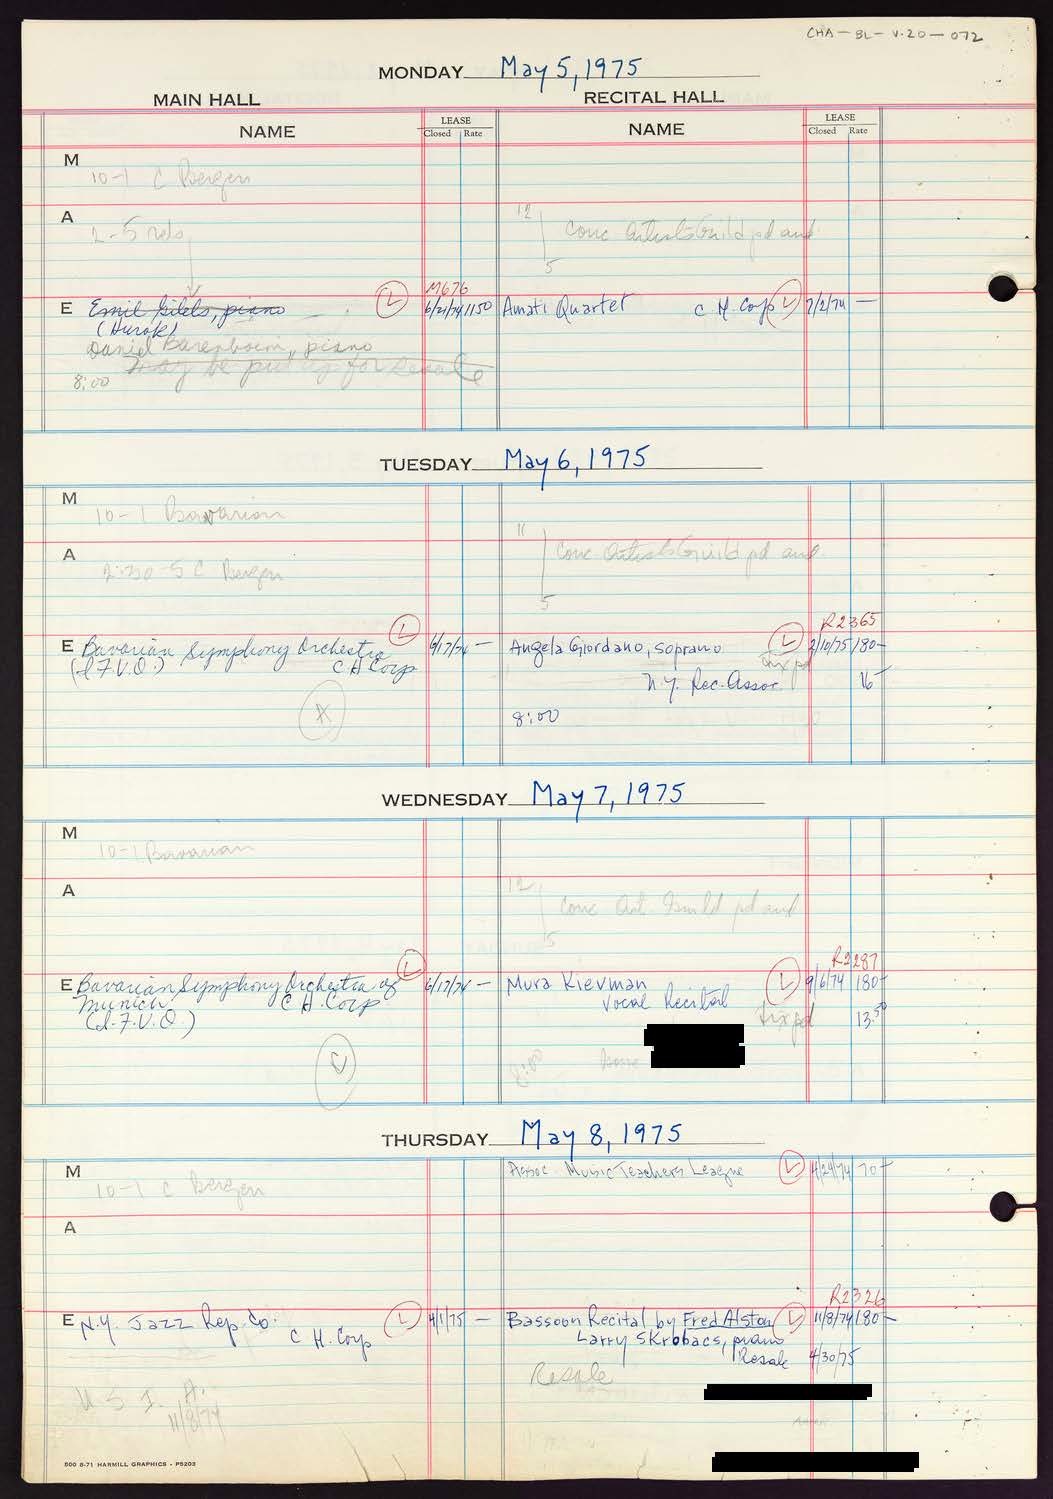 CHA-BL-V.20-072
MONDAY May 5, 1975
MAIN HALL
RECITAL HALL
NAME
LEASE
Closed Rate
NAME
LEASE
Closed Rate
M
10-1 C Bergen
A
2-5
12
5
Conc Artists Guild pd and
M676
E Emil Gilels, piano L 6/21/74 1150
(Hurok)
Daniel Barenboim, piano
may be put up for resale
8:00
Amati Quartet C H Corp L 7/2/74 —
TUESDAY May 6, 1975
M
10-1 Bavarian
A
2:30-5 C Bergen
11
5
Conc Artists Guild pd and
E Bavarian Symphony Orchestra L 6/17/74 —
(I.F.V.O.) C H Corp
R2365
Angela Giordano, soprano L 2/10/75 180-
tix pd
N.Y. Rec. Assoc. 16-
8:00
WEDNESDAY May 7, 1975
M
10-1 Bavarian
A
12
5
Conc Art. Guild pd and
E Bavarian Symphony Orchestra of L 6/17/74 —
Munich C H. Corp
(I.F.V.O.)
R2287
Mura Kievman L 9/6/74 180-
Vocal Recital
tix pd 13.50
8:00
THURSDAY May 8, 1975
M
10-1 C Bergen
Assoc. Music Teachers League L 4/24/74 70-
A
E N.Y. Jazz Rep. Co. L 4/1/75 —
C H. Corp
U S I A.
11/8/74
R2326
Bassoon Recital by Fred Alston L 11/8/74 180-
Larry Skrobacs, piano
Resale 4/30/75
Resale
500 8-71 HARMILL GRAPHICS - P5203